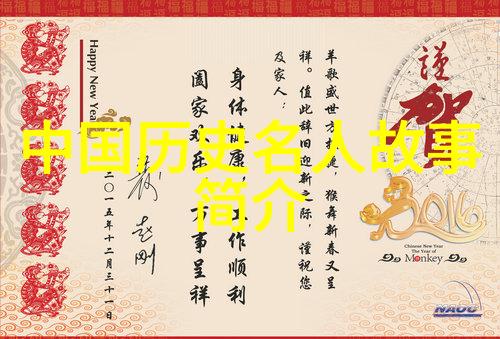 中国历史名人故事
简介
謹
贺
2016
Chinese New Year
The Year of
Monkey
NAOC
羊歌盛世方报捷，猴舞新春又呈
祥。值此辞旧迎新之际，谨祝您
及家人：
身体健康，工作顺利
阖家欢乐，万事呈祥
赵刚
二〇一五年十二月三十一日
Happy New Year